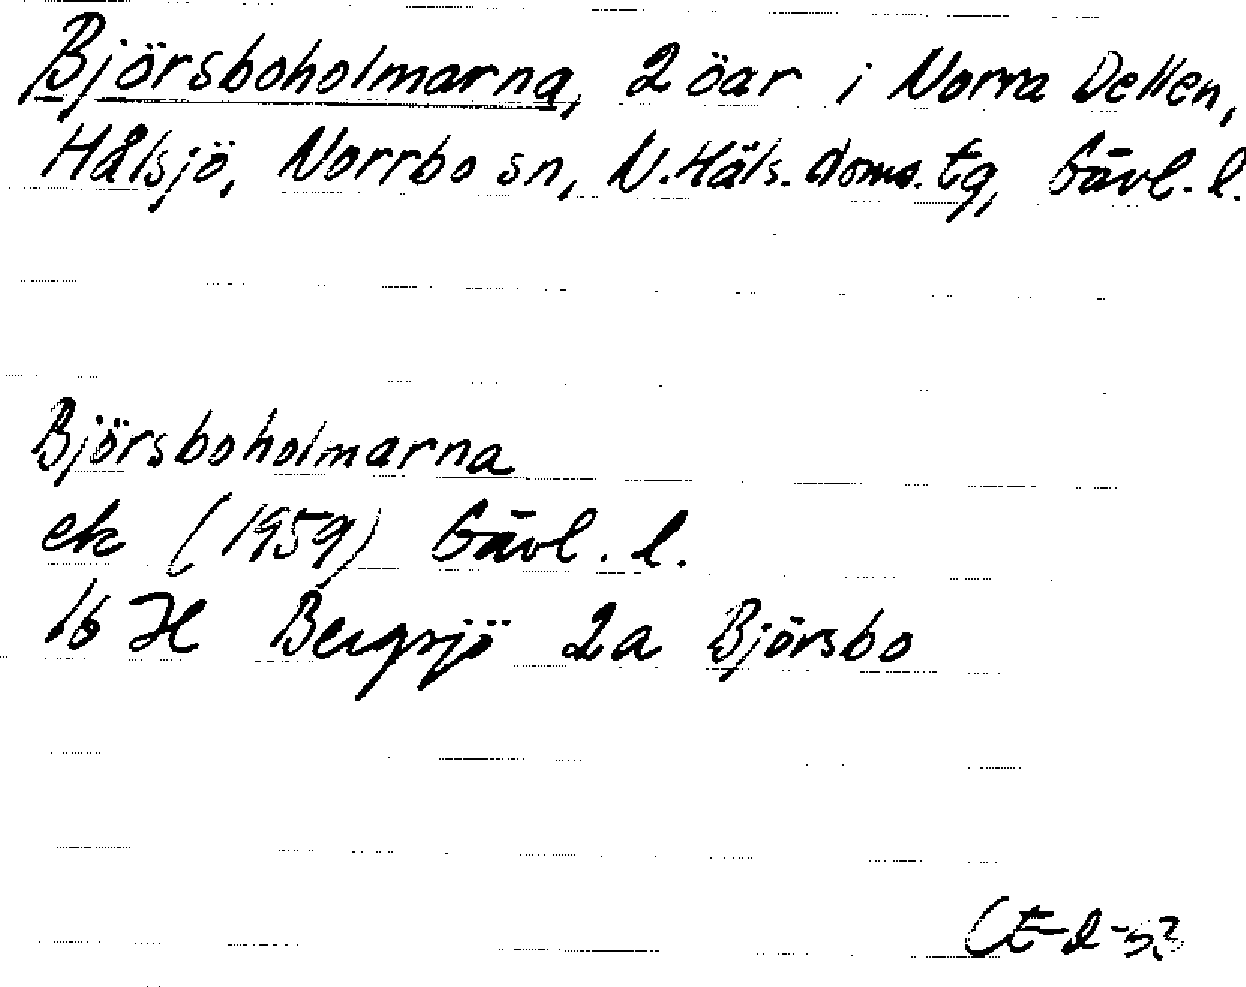 Björsboholmarna, 2 öar i Norra Dellen,
Hålsjö, Norrbo sn, N. Häls. doms. tg, Gävl. l.
Björsboholmarna
ek (1959) Gävl. l.
16 H Bergsjö 2a Björsbo